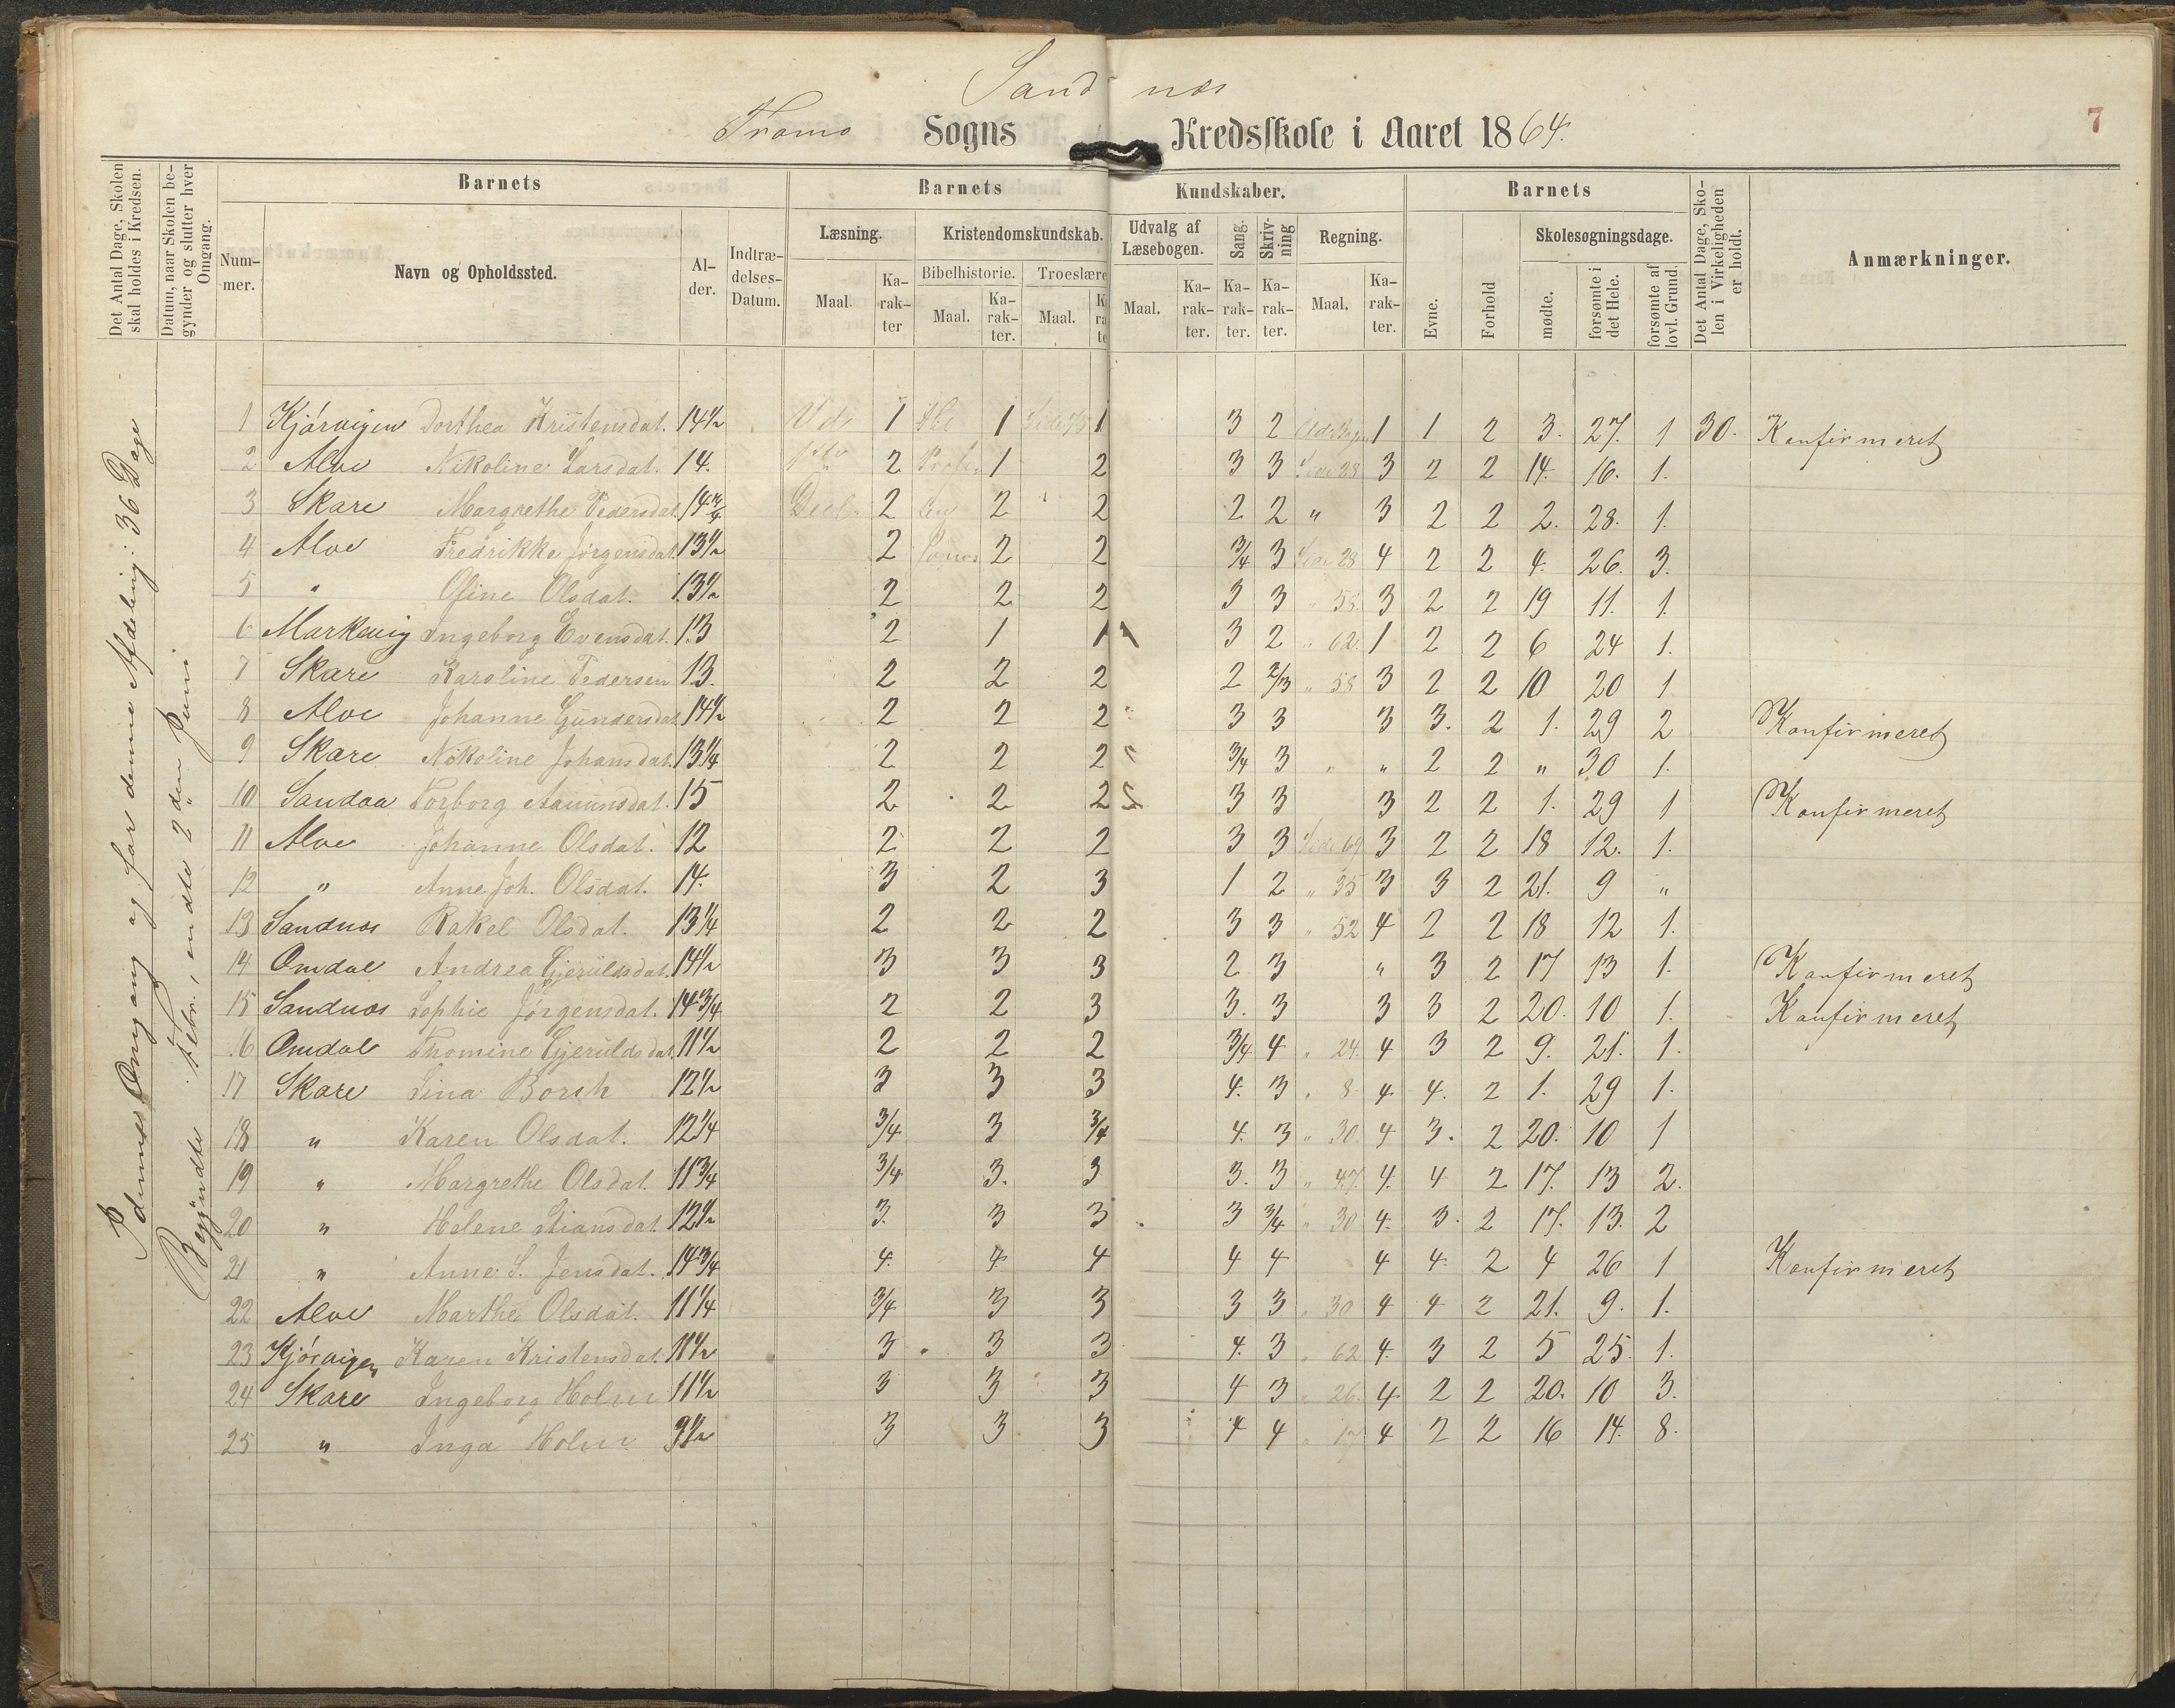 Sandnæs
Tromø Sogns Kredsskole i Aaret 1864.
7
Det Antal Dage, Skolen skal holdes i Kredsen.
Datum, naar Skolen begynder og slutter hver Omgang.
Barnets
Barnets
Kundskaber.
Barnets
Det Antal Dage, Skolen i Virkeligheden er holdt.
Anmærkninger.
Nummer.
Navn og Opholdssted.
Alder.
Indtrædelses-Datum.
Læsning.
Kristendomskundskab.
Udvalg af Læsebogen.
Sang.
Skrivning
Regning.
Evne.
Forhold
Skolesøgningsdage.
Maal.
Karakter
Bibelhistorie.
Troeslære
Maal.
Karakter.
Maal.
Maal.
Karakter.
Karakter.
Karakter.
Maal.
Karakter.
mødte.
forsømte i det Hele.
forsømte af lovl. Grund.
I denne Omgang og for denne Afdeling: 36 Dage
Begyndte Febr., endte 2den Juni
1 Kjørvigen Dorthea Kristensdat. 14½ Udv 1 1 Side 75 1 3 2 1 1 2 3. 27. 1 30. Konfirmeret
2 Alve Nikoline Larsdat. 14. 2 1 2 3 3 Side 28 3 2 2 14. 16. 1.
3 Skare Margrethe Pedersdat. 14¾ Deel 2 2 2 2 2 " 3 2 2 2. 28. 1.
4 Alve Fredrikke Jørgensdat. 13½ 2 2 2 ¾ 3 Side 28 4 2 2 4. 26. 3.
5 " Ofine Olsdat. 13½ 2 2 2 3 3 " 58 3 2 2 19 11. 1.
6 Markevig Ingeborg Evensdat. 13 2 1 1 3 2 " 62. 1 2 2 6 24 1.
7 Skare Karoline Pedersen 13. 2 2 2 2 2/3 " 58 3 2 2 10 20 1
8 Alve Johanne Gundersdat 14½ 2 2 2 3 3 3 3. 2 1. 29 2 Konfirmeret
9 Skare Nikoline Johansdat. 13¼ 2 2 2 ¾ 3 " " 2 2 " 30 1.
10 Sandaa Torborg Aanunsdat. 15 2 2 2 3 3 3 2 2 1. 29 1 Konfirmeret
11 Alve Johanne Olsdat. 12 2 2 2 3 3 Side 69 3 2 2 18 12. 1.
12 " Anne Joh. Olsdat. 14. 3 2 3 1 2 " 35 3 3 2 21. 9 "
13 Sandnæs Rakel Olsdat. 13¼ 2 2 2 3 3 " 52 4 2 2 18 12 1.
14 Omdal Andrea Gjeruldsdat. 14½ 3 3 3 2 3 " 3 2 17 13 1. Konfirmeret
15 Sandnæs Sophie Jørgensdat. 14¾ 2 2 3 3. 3 3 3 2 20. 10 1. Konfirmeret
16 Omdal Thomine Gjeruldsdat. 11½ 2 2 2 ¾ 4 " 24. 4 3 2 9. 21. 1.
17 Skare Lina Borsh 12½ 3 3 3 4. 3 " 8 4 4. 2 1. 29 1.
18 " Karen Olsdat. 12¼ ¾ 3 ¾ 4. 3 " 30. 4 3. 2 20. 10 1
19 " Margrethe Olsdat. 11¾ ¾ 3. 3 3. 3 " 47. 4. 4 2 17. 13 2.
20 " Helene Stiansdat. 12½ 3. 3 3 3 ¾ " 30 4. 3. 2 17. 13. 2
21 " Anne S. Jensdat. 14¾ 4. 4. 4 4 4 4 4. 2 4 26 1 Konfirmeret
22 Alve Marthe Olsdat. 11¼ ¾ 3 3 3 3 " 30 4 4 2 21. 9. 1.
23 Kjørvigen Karen Kristensdat. 11½ 3 3 3 4. 3 " 62 4. 3 2 5 25. 1.
24 Skare Ingeborg Holm 11½ 3 3 3 4 3 " 26. 4 2 2 20. 10 3.
25 " Inga Holm 9½ 3 3 3 4 4 " 17 4 2 2 16 14. 8.